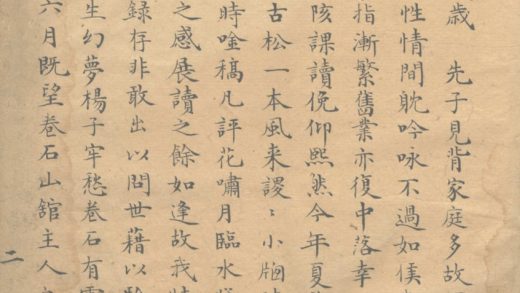 歲　先子見背家庭多故
性情間躭吟咏不過如候
指漸繁舊業亦復中落幸
陔課讀俛仰熙然今年夏
古松一本風来謖〻小牕
時唫稿凡評花嘯月臨水
之感展讀之餘如逢故我
錄存非敢出以問世藉以
生幻夢楊子牢愁卷石有
六月既望卷石山舘主人
二